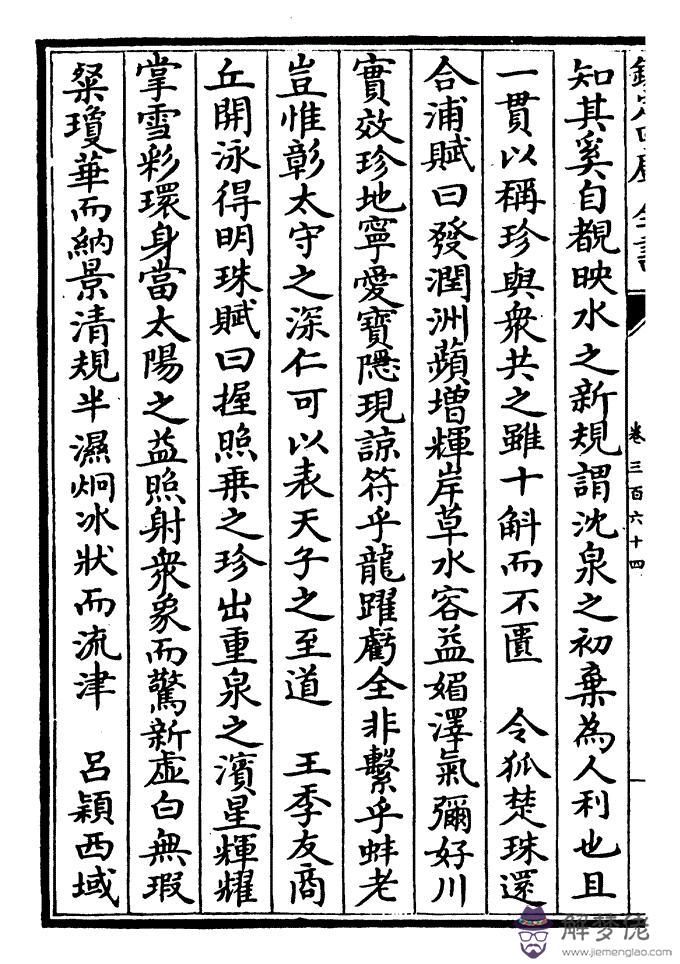 欽定四庫全書
卷三百六十四
知其奚自覩映水之新規謂沈泉之初棄為人利也且
一貫以稱珍與衆共之雖十斛而不匱　令狐楚珠還
合浦賦曰發潤洲蘋增輝岸草水容益媚澤氣彌好川
實效珍地寧愛寶隱現諒符乎龍躍虧全非繫乎蚌老
豈惟彰太守之深仁可以表天子之至道　王季友商
丘開泳得明珠賦曰握照乗之珍出重泉之濱星輝耀
掌雪彩環身當太陽之益照射衆象而驚新虛白無瑕
粲瓊華而納景清規半濕炯冰狀而流津　呂穎西域
解梦佬
www.jiemenglao.com